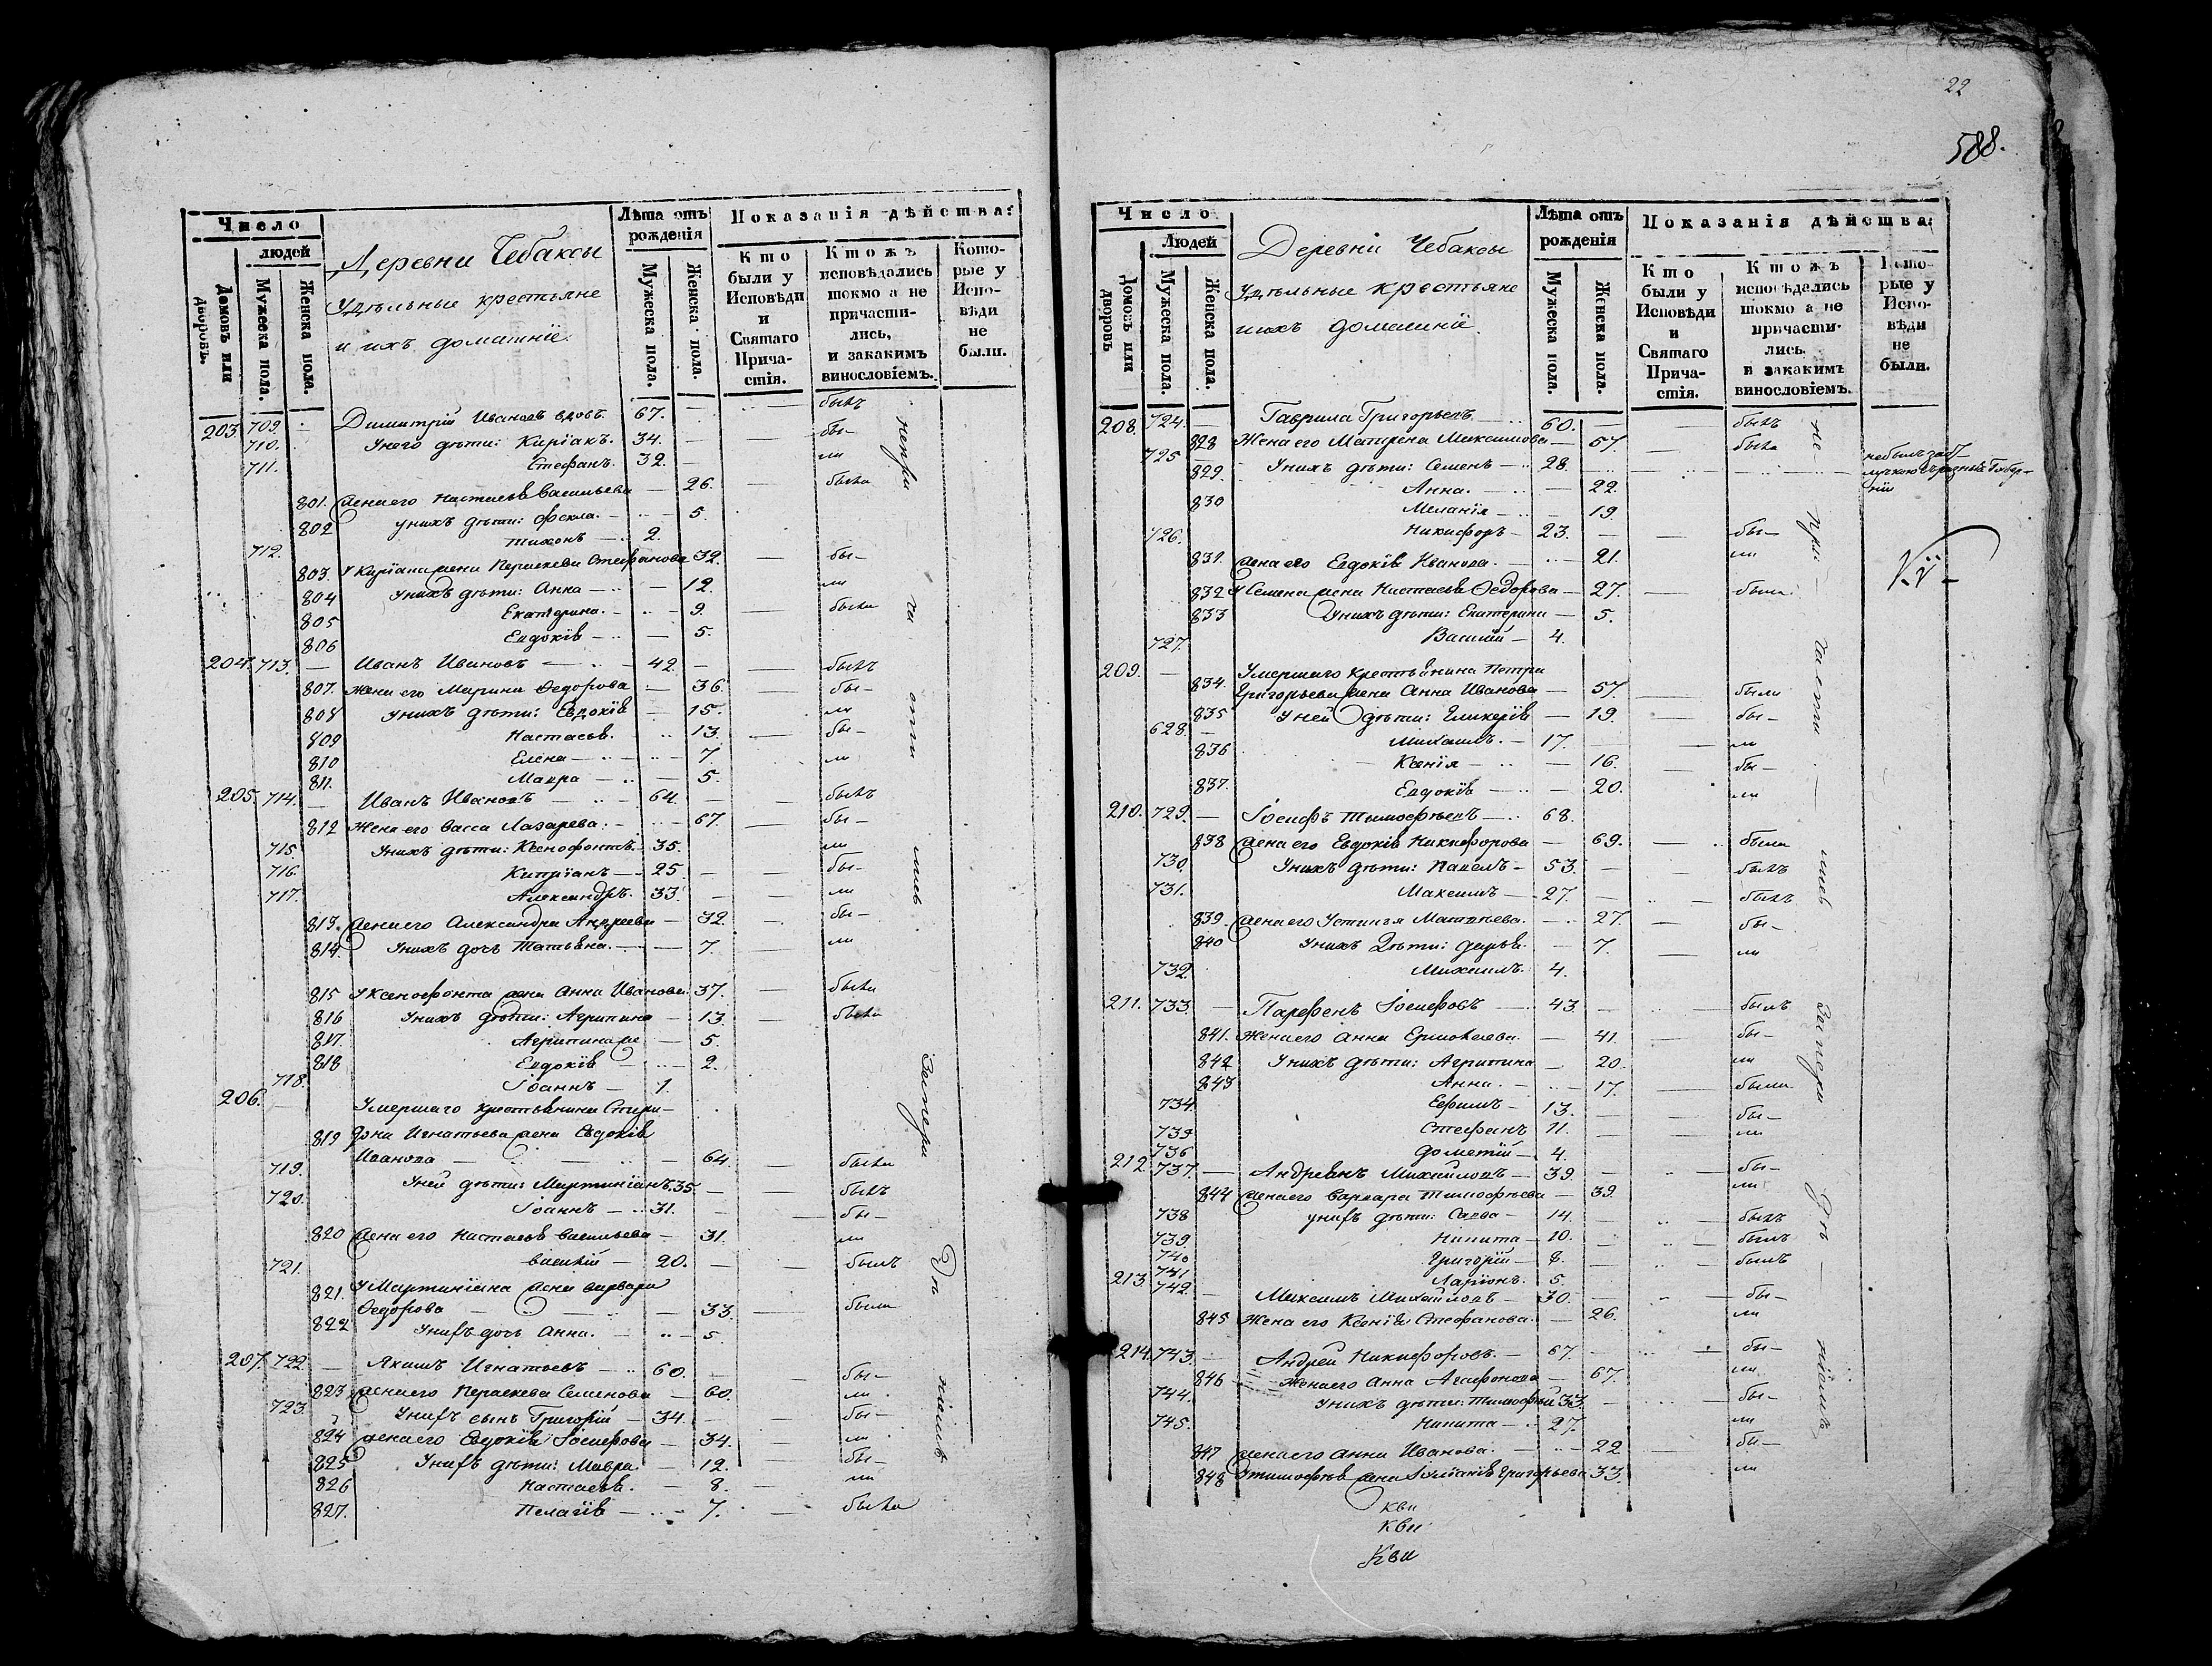 Число
людей
Домовъ или дворовъ.
Мужеска пола.
Женска пола.
Деревни Чебаксы
Удѣльные крестьяне
и ихъ домашніе.
Лѣта отъ рожденія
Мужеска пола.
Женска пола.
Показанія дѣйства:
Кто были у Исповѣди и Святаго Причастія.
Ктожъ исповѣдались токмо а не причастились, и закакимъ винословіемъ.
Которые у Исповѣди не были.
203. 709. Димитрій Ивановъ вдовъ. 67. былъ
710. Унего дѣти: Киріакъ. 34. бы-
711. Стефанъ. 32. ли
801. Жена его Настасья Васильева 26. была
802 Унихъ дѣти: Фекла. 5.
712. Тихонъ 2.
803. У Киріана жена Пераскева Стефанова 32. бы-
804 Унихъ дѣти: Анна 12. ли
805 Екатерина. 9. была
806 Евдокія 5.
204. 713. Иванъ Ивановъ 42 былъ
807. Жена его Марина Ѳедорова 36. бы-
808 Унихъ дѣти: Евдокія 15. ли
809 Настасья. 13. бы-
810 Елена 7 ли
811. Мавра 5.
205. 714. Иванъ Ивановъ 64. былъ
812 Жена его Васса Лазарева. 67. бы-
715. Унихъ дѣти: Ксенофонтъ. 35. ли
716. Кипріанъ 25. бы-
717. Александръ. 33. ли
813. Жена его Александра Андреева 32. бы-
814. Унихъ дочь Татьяна. 7. ли
815 У Ксенофонта жена Анна Иванова. 37. была
816 Унихъ дѣти: Агрипина 13. была
817. Агрипина же 5.
818 Евдокія 2.
718. Іоаннъ 1.
206. Умершаго крестьянина Спири-
819 дона Игнатьева жена Евдокія
Иванова 64. была
719. Уней дѣти: Мартиніанъ. 35 былъ
720. Іоаннъ 31. бы-
820 Жена его Настасья Васильева 31. ли
721. Василій 20. былъ
821. У Мартиніана жена Варвара
Ѳедорова 33. была
822 Унихъ дочь Анна. 5.
207. 722. Якимъ Игнатьевъ 60. бы-
823 Жена его Пераскева Семенова 60. ли
723. Унихъ сынъ Григорій 34. бы-
824 Жена его Евдокія Іосифова 34. ли
825 Унихъ дѣти: Мавра. 12. бы-
826 Настасья. 8. ли
827. Пелагія 7. была
22
588.
Число
Людей
Домовъ или дворовъ
Мужеска пола
Женска пола.
Деревни Чебаксы
Удѣльные крестьяне
и ихъ домашніе.
Лѣта отъ рожденія
Мужеска пола.
Женска пола.
Показанія дѣйства:
Кто были у Исповѣди и Святаго Причастія.
Ктожъ исповѣдались токмо а не причастились. и закакимъ винословіемъ.
Которые у Исповѣди не были.
208. 724. Гаврила Григорьевъ 60. былъ
828 Жена его Матрена Максимова 57. была
725 Унихъ дѣти: Семенъ 28.
829. Анна. 22.
830 Меланія 19.
726. Никифоръ 23. бы-
831. Жена его Евдокія Иванова. 21. ли
832 У Семена жена Настасья Ѳедорова 27. была
833 Унихъ дѣти: Екатерина 5.
727. Василій 4.
209. Умершаго крестьянина Петра
834. Григорьева жена Анна Иванова 57. были
835 Уней дѣти: Гликерія 19. бы-
628. Михаилъ. 17. ли
836 Ксенія 16. бы-
837. Евдокія 20. ли
210. 729. Іосифъ Тимофѣевъ 68.
838 Жена его Евдокія Никифорова 69. была
730. Унихъ дѣти: Павелъ 53. былъ
731. Максимъ 27. былъ
839. Жена его Устинья Матвѣева. 27 бы-
840 Унихъ дѣти: Дарья. 7. ли
732. Михаилъ. 4.
211. 733. Парфенъ Іосифовъ 43. былъ
841. Жена его Анна Ермолаева. 41. бы-
842 Унихъ дѣти: Агрипина 20. ли
843 Анна. 17. были
734. Ефимъ 13. бы-
735 Стефанъ 11. ли
736 Дометій 4.
212 737. Андреянъ Михайловъ 39. бы-
844 Жена его Варвара Тимофѣева 39. ли
738 унихъ дѣти: Савва 14. былъ
739. Никита 10. былъ
740 Григорій 8. былъ
741 Ларіонъ. 5.
213. 742. Максимъ Михайловъ 30. бы-
845 Жена его Ксенія Стефанова. 26. ли
214. 743. Андрей Никифоровъ. 67. бы-
846 Жена его Анна Агафонова 67. ли
744. Унихъ дѣти: Тимофей 33. бы-
745. Никита 27. ли
847 Жена его Анна Иванова. 22 бы-
848 У Тимофея жена Іуліанія Григорьева 33. ли
кви
кви
Кви